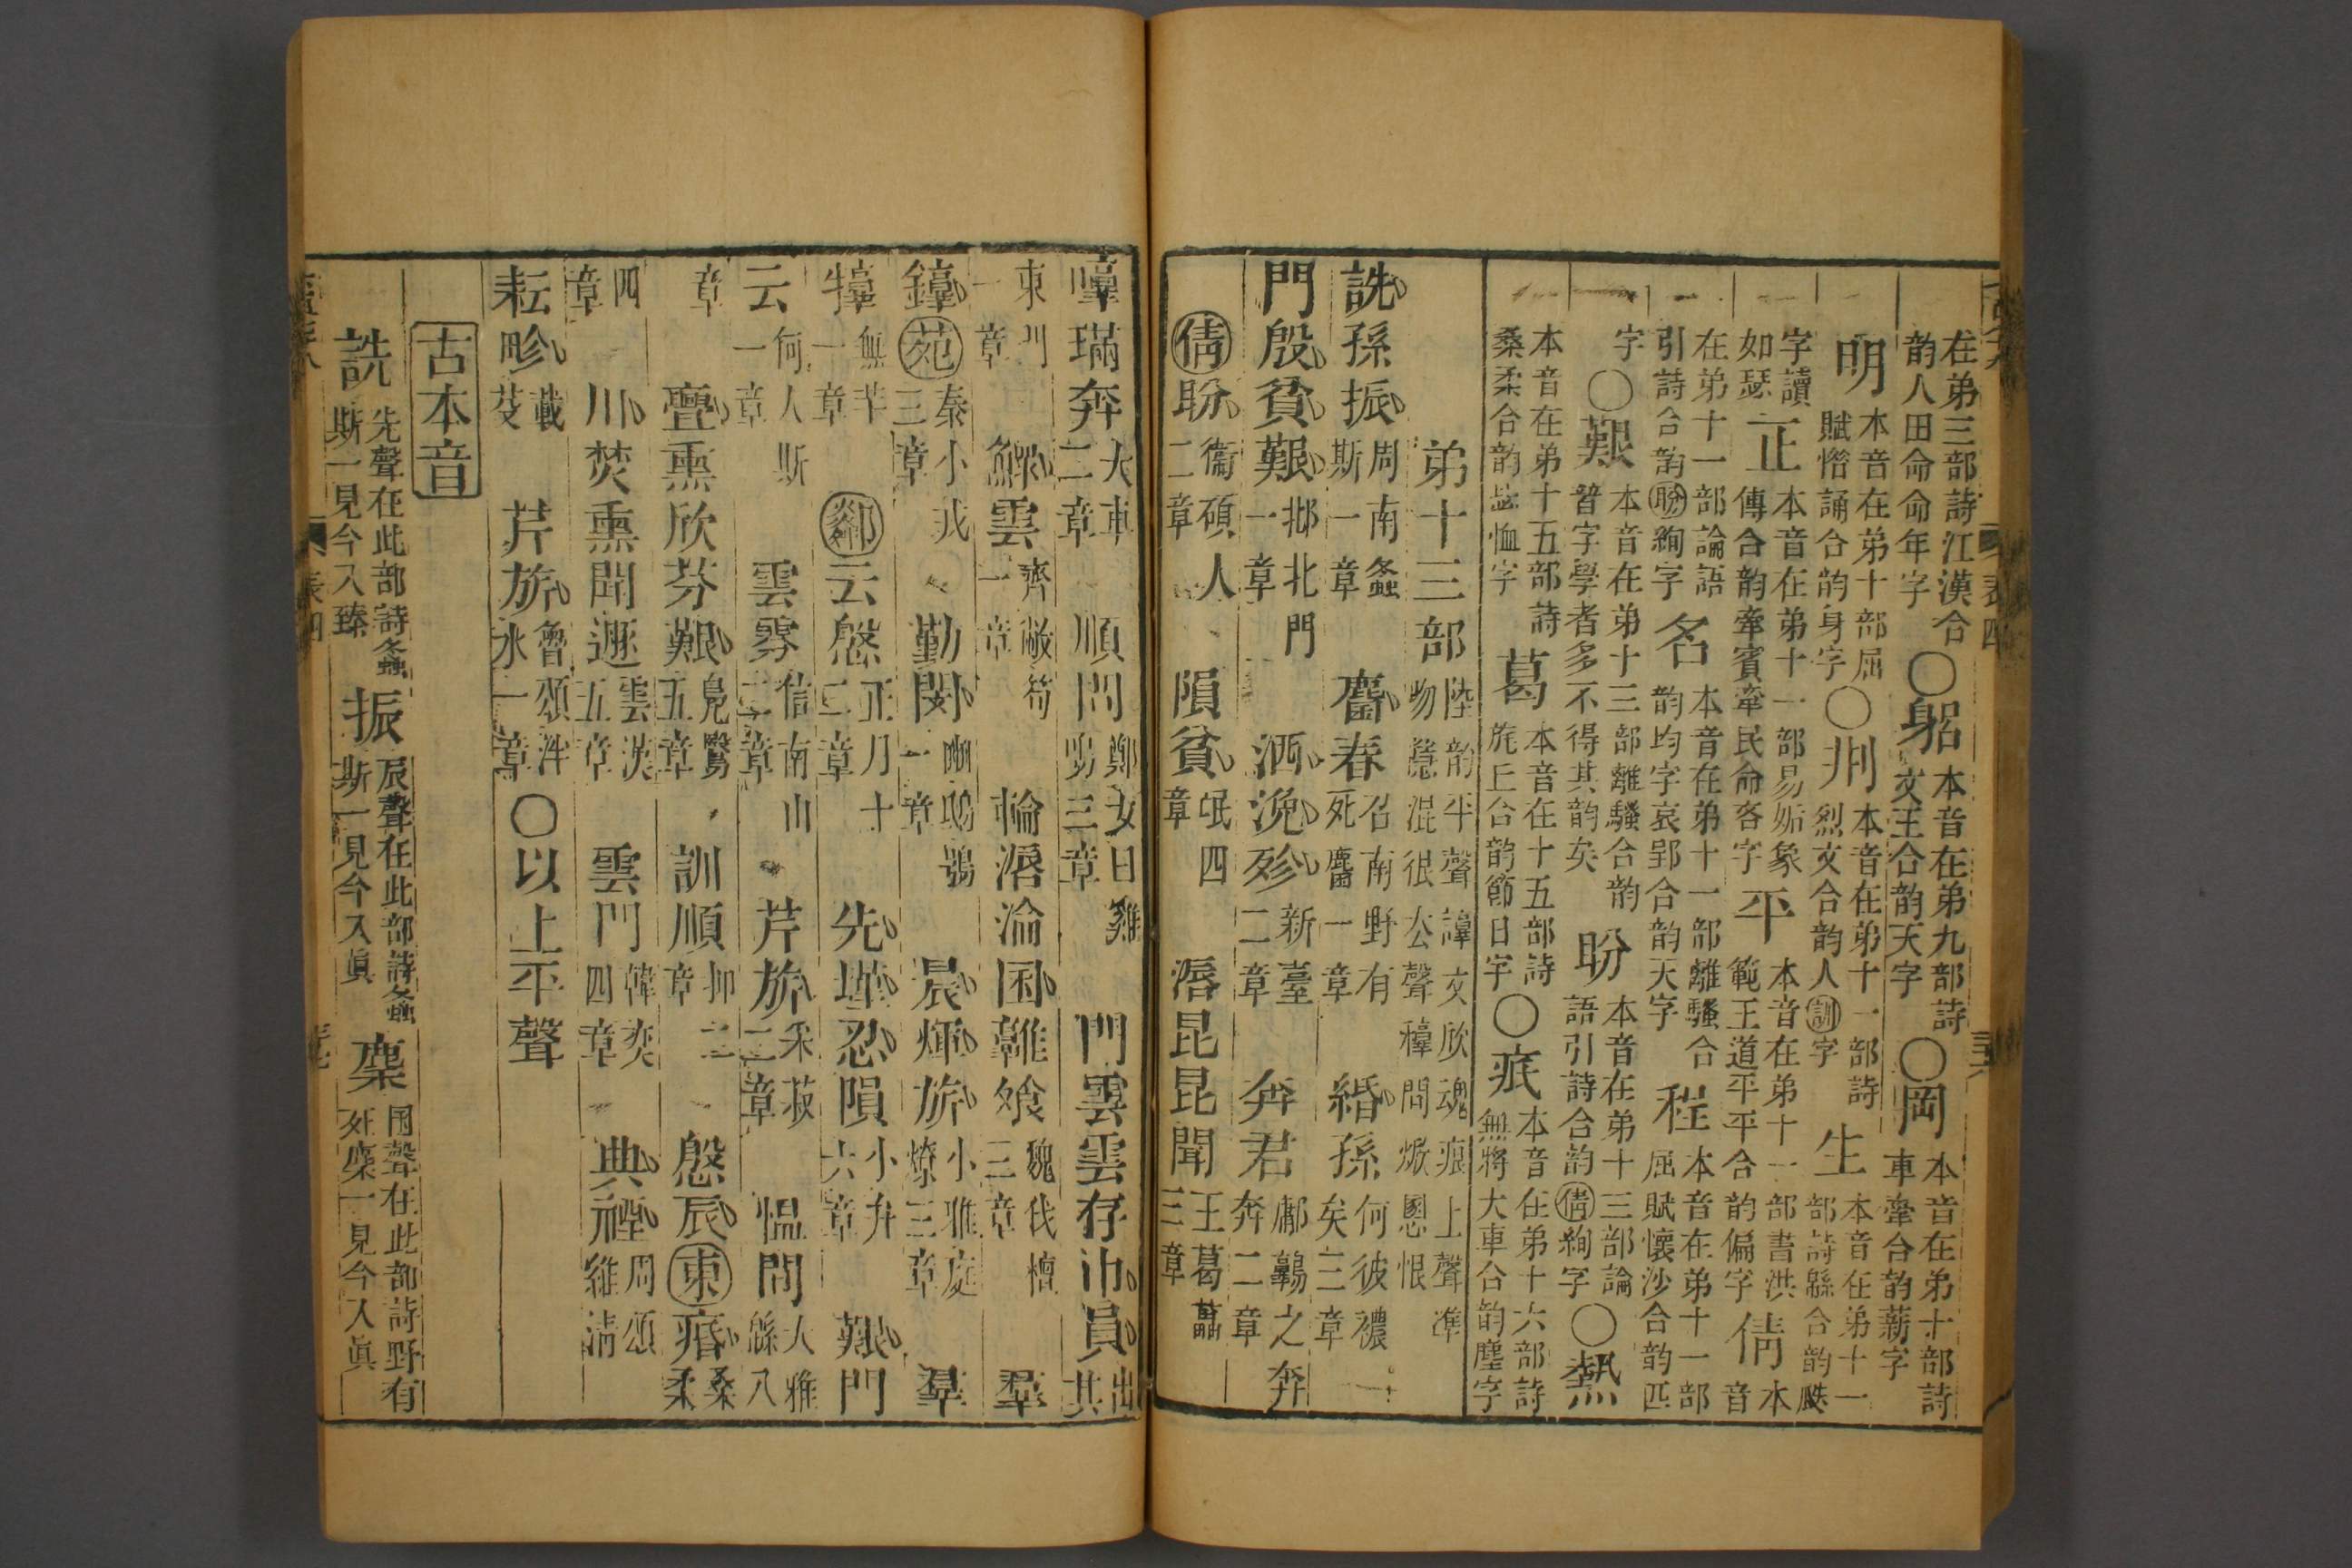 在弟三部詩江漢合韵人田命命年字〇躬本音在弟九部詩文王合韵天字〇岡本音在弟十部詩車舝合韵薪字
明本音在弟十部屈賦惜誦合韵身字〇刑本音在弟十一部詩烈文合韵人訓字生本音在弟十一部詩緜合韵瓞
字讀如瑟正本音在弟十一部易姤象傳合韵牽賓牽民命吝字平本音在弟十一部書洪範王道平平合韵偏字倩本音
在弟十一部論語引詩合韵盼絢字名本音在弟十一部離騷合韵均字哀郢合韵天字程本音在弟十一部屈賦懷沙合韵匹
字〇艱本音在弟十三部離騷合韵替字學者多不得其韵矣盼本音在弟十三部論語引詩合韵倩絢字〇熱
本音在弟十五部詩桑柔合韵毖恤字葛本音在十五部詩旄丘合韵節日字〇疧本音在弟十六部詩無將大車合韵塵字
弟十三部陸韵平聲諄文欣魂痕上聲準吻隱混很去聲稕問焮慁恨
詵孫振周南螽斯一章麕春召南野有死麕一章緡孫何彼襛矣三章
門殷貧艱邶北門一章洒浼殄新臺二章奔君鄘鶉之奔奔二章
倩盼衞碩人二章隕貧氓四章漘昆昆聞王葛藟三章
啍璊奔大車二章順問鄭女曰雞鳴三章門雲雲存巾員出其
東門一章鰥雲齊敝笱一章輪漘淪囷鶉飧魏伐檀三章羣
錞苑秦小戎三章勤閔豳鴟鴞一章晨煇旂小雅庭燎三章羣
犉無羊一章鄰云慇正月十二章先墐忍隕小弁六章艱門
云何人斯一章雲雰信南山二章芹旂采菽二章愠問大雅緜八
章亹熏欣芬艱鳧鷖五章訓順抑二章慇辰東痻桑柔
四章川焚熏聞遯雲漢五章雲門韓奕四章典禋周頌維清
耘畛載芟芹旂魯頌泮水一章〇以上平聲
古本音
詵先聲在此部詩螽斯一見今入臻振辰聲在此部詩螽斯一見今入眞麇囷聲在此部詩野有死麇一見今入眞